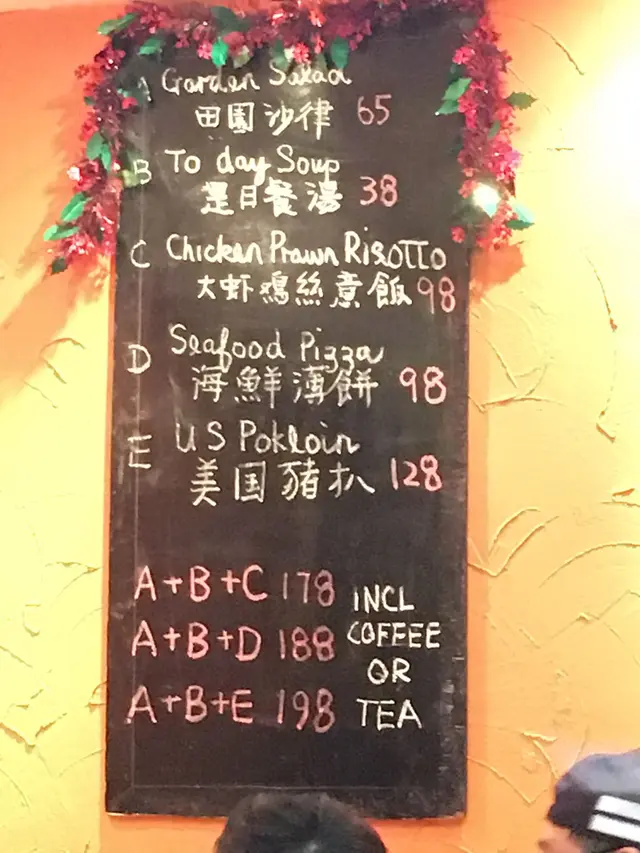 A Garden Salad
田園沙律 65
B To day Soup
是日餐湯 38
C Chicken Prawn Risotto
大虾鸡絲意飯 98
D Seafood Pizza
海鮮薄餅 98
E US Pokloin
美国豬扒 128
A+B+C 178
A+B+D 188
A+B+E 198
INCL
COFFEE
OR
TEA